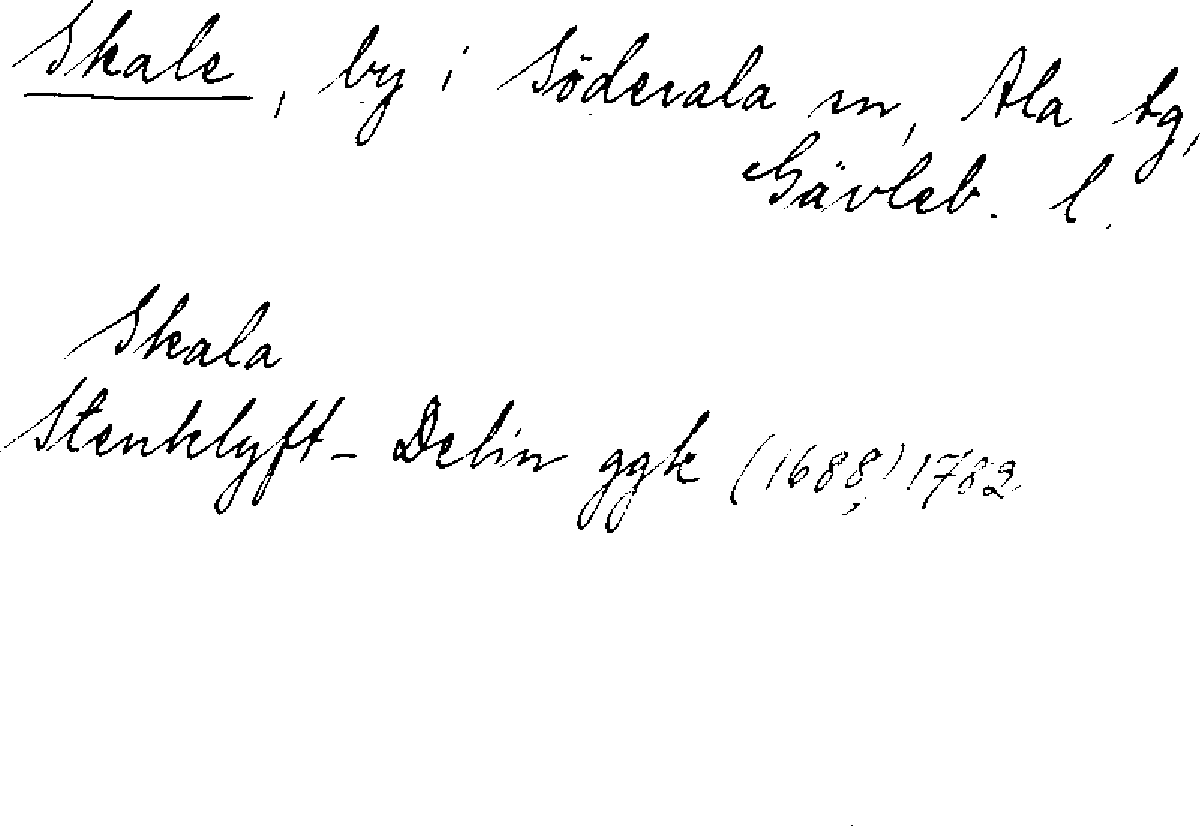 Skale, by i Söderala sn, Ala tg,
Gävleb. l.
Skala
Stenklyft- Delin ggk (1688,) 1782